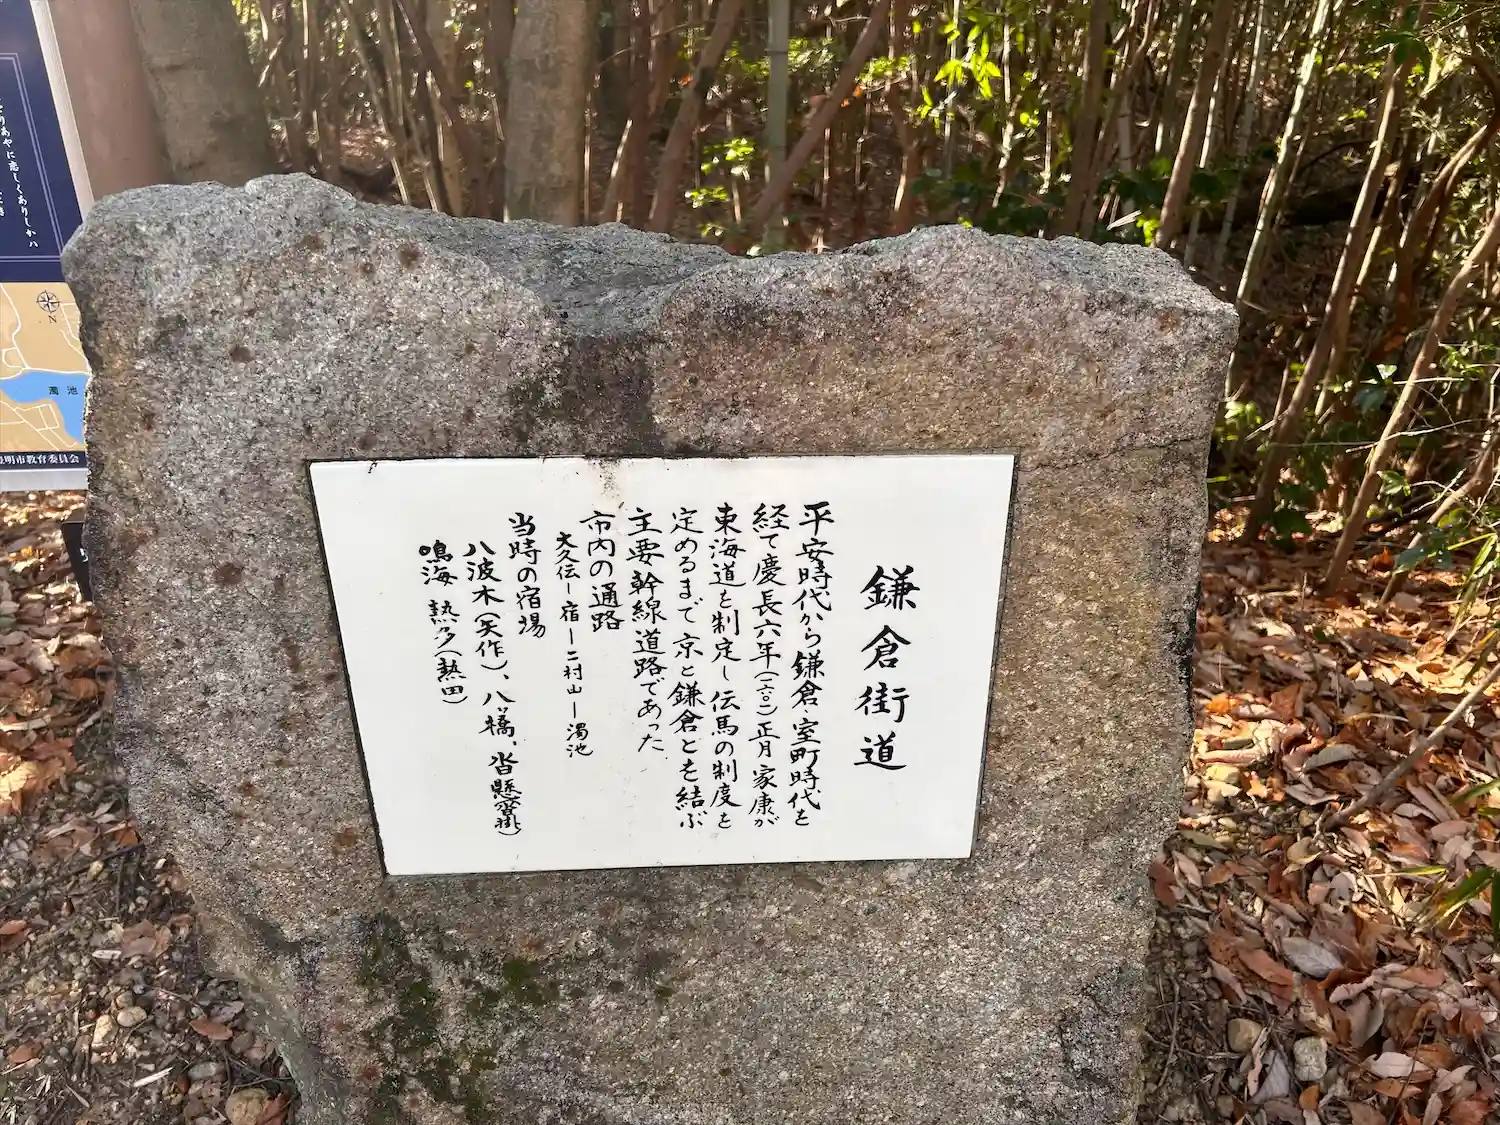 鎌倉街道
平安時代から鎌倉・室町時代を
経て慶長六年(一六〇一)正月家康が
東海道を制定し伝馬の制度を
定めるまで京と鎌倉とを結ぶ
主要幹線道路であった
市内の通路
大久伝ー宿ー二村山ー濁池
当時の宿場
八波木(矢作)、八橋、沓懸(沓掛)
鳴海 熱夛(熱田)
りあやに恋しくありしか ハ
N
濁池
明市教育委員会